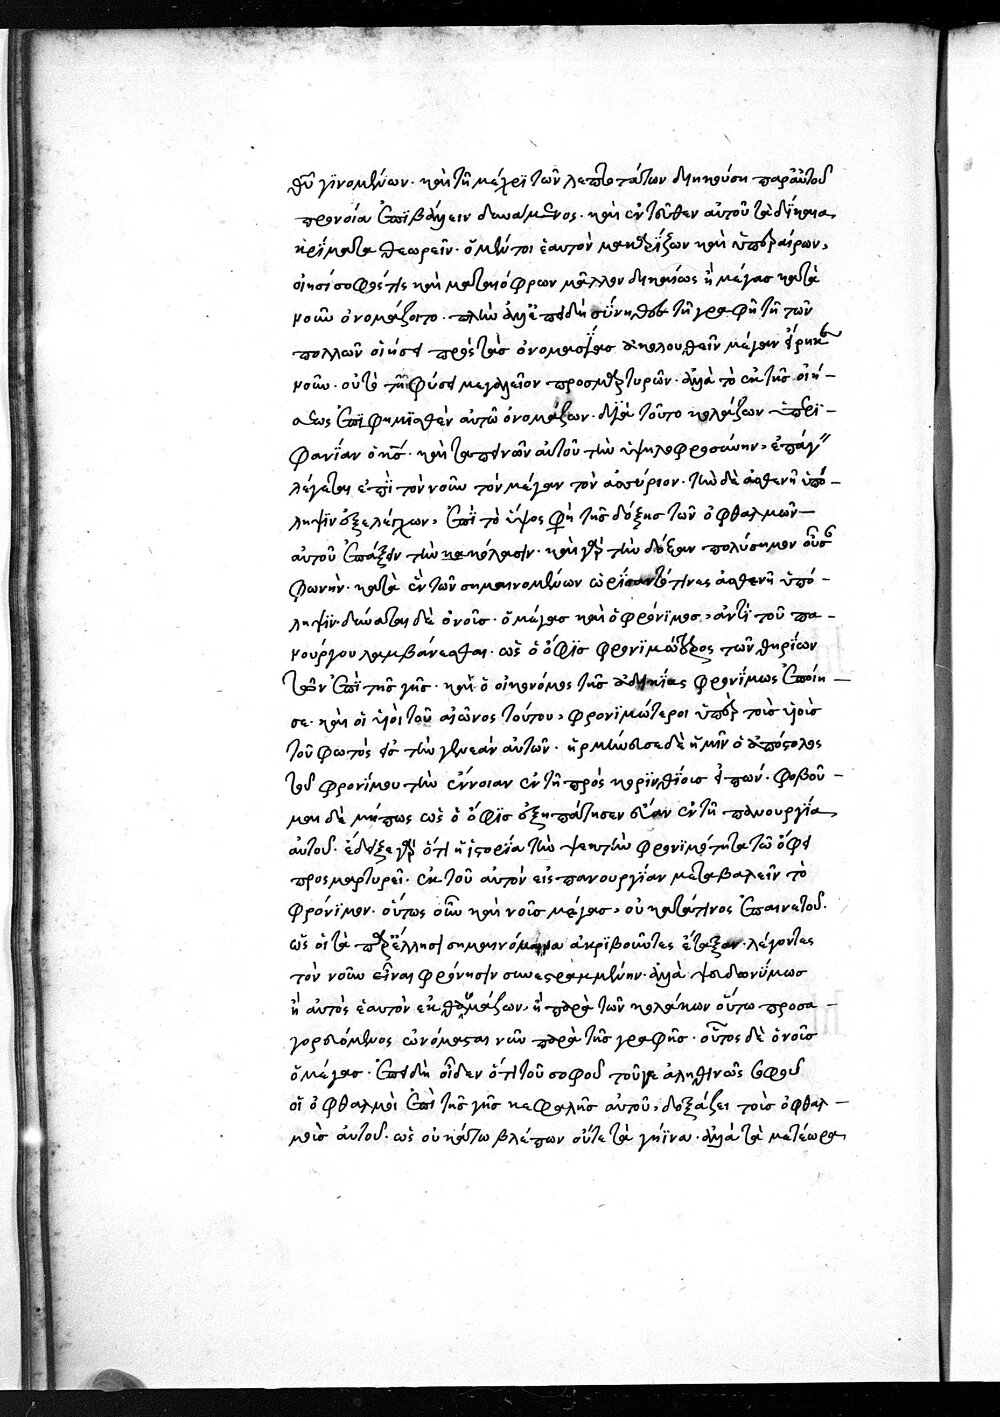 θεοῦ γινομένων· καὶ τῇ μέχρι τῶν λεπτοτάτων διηκούσῃ παρ' αὐτοῦ
προνοίᾳ ἐπιβάλλειν δυνάμενος· καὶ ἐντεῦθεν αὐτοῦ τὰ δίκαια
κρίματα θεωρεῖν· ὁ μέντοι ἑαυτὸν μακαρίζων καὶ ὑπεραίρων,
οἰησίσοφός τις καὶ ματαιόφρων μᾶλλον δικαίως ἢ μέγας κατὰ
νοῦν ὀνομάζοιτο· πλὴν ἀλλ' ἐπειδὴ σύνηθες τῇ γραφῇ τῇ τῶν
πολλῶν οἰήσει πρὸς τὰς ὀνομασίας ἀκολουθεῖν μέγαν εἴρηκε
νοῦν· οὔτε τῇ φύσει μεγαλεῖον προσμαρτυρῶν· ἀλλὰ τὸ ἐκ τῆς οἰή-
σεως ἐπιφημισθὲν αὐτῷ ὀνομάζων· διὰ τοῦτο κολάζων ὑπερη-
φανίαν ὁ θεός· καὶ ταπεινῶν αὐτοῦ τὴν ὑψηλοφροσύνην, ἐπάγειν
λέγεται ἐπὶ τὸν νοῦν τὸν μέγαν τὸν ἀσσύριον· τὴν δὲ ἀσθενῆ ὑπό-
ληψιν ἐξελέγχων, ἐπὶ τὸ ὕψος φησὶ τῆς δόξης τῶν ὀφθαλμῶν
αὐτοῦ ἐπάξειν τὴν κόλασιν· καὶ γὰρ τὴν δόξαν πολύσημον οὖσαν
φωνὴν· κατὰ ἓν τῶν σημαινομένων ὡρίσαντό τινες ἀσθενῆ ὑπό-
ληψιν· δύναται δὲ ὁ νοῦς· ὁ μέγας καὶ ὁ φρόνιμος, ἀντὶ τοῦ πα-
νούργου λαμβάνεσθαι· ὡς ὁ ὄφις φρονιμώτερος τῶν θηρίων
τῶν ἐπὶ τῆς γῆς· καὶ ὁ οἰκονόμος τῆς ἀδικίας φρονίμως ἐποίη-
σε· καὶ οἱ υἱοὶ τοῦ αἰῶνος τούτου, φρονιμώτεροι ὑπὲρ τοὺς υἱοὺς
τοῦ φωτὸς εἰς τὴν γενεὰν αὐτῶν· ἡρμήνευσε δὲ ἡμῖν ὁ ἀπόστολος
τοῦ φρονίμου τὴν ἔννοιαν ἐν τῇ πρὸς κορινθίους εἰπών· φοβοῦ-
μαι δὲ μήπως ὡς ὁ ὄφις ἐξηπάτησεν εὔαν ἐν τῇ πανουργίᾳ
αὐτοῦ· ἔδειξε γὰρ ὅτι ἡ ἱστορία τὴν ψεκτὴν φρονιμότητα τῷ ὄφει
προσμαρτυρεῖ· ἐκ τοῦ αὐτὸν εἰς πανουργίαν μεταβαλεῖν τὸ
φρόνιμον· οὕτως οὖν καὶ νοῦς μέγας, οὐ κατά τινος ἐπαινετοῦ·
ὡς οἱ τὰ παρ' ἕλλησι σημαινόμενα ἀκριβοῦντες ἔταξαν· λέγοντες
τὸν νοῦν εἶναι φρόνησιν συνεστραμμένην· ἀλλὰ ψευδωνύμως
ἢ αὐτὸς ἑαυτὸν ἐκθαυμάζων, ἢ παρὰ τῶν κολάκων οὕτω προσα-
γορευόμενος ὠνόμασται νῦν παρὰ τῆς γραφῆς· οὗτος δὲ ὁ νοῦς
ὁ μέγας· ἐπειδὴ οἶδεν ὅτι τοῦ σοφοῦ τοῦγε ἀληθινῶς σοφοῦ
οἱ ὀφθαλμοὶ ἐπὶ τῆς γῆς κεφαλῆς αὐτοῦ, δοξάζει τοὺς ὀφθαλ-
μοὺς αὐτοῦ· ὡς οὐ κάτω βλέπων οὔτε τὰ γήϊνα· ἀλλὰ τὰ μετέωρα,